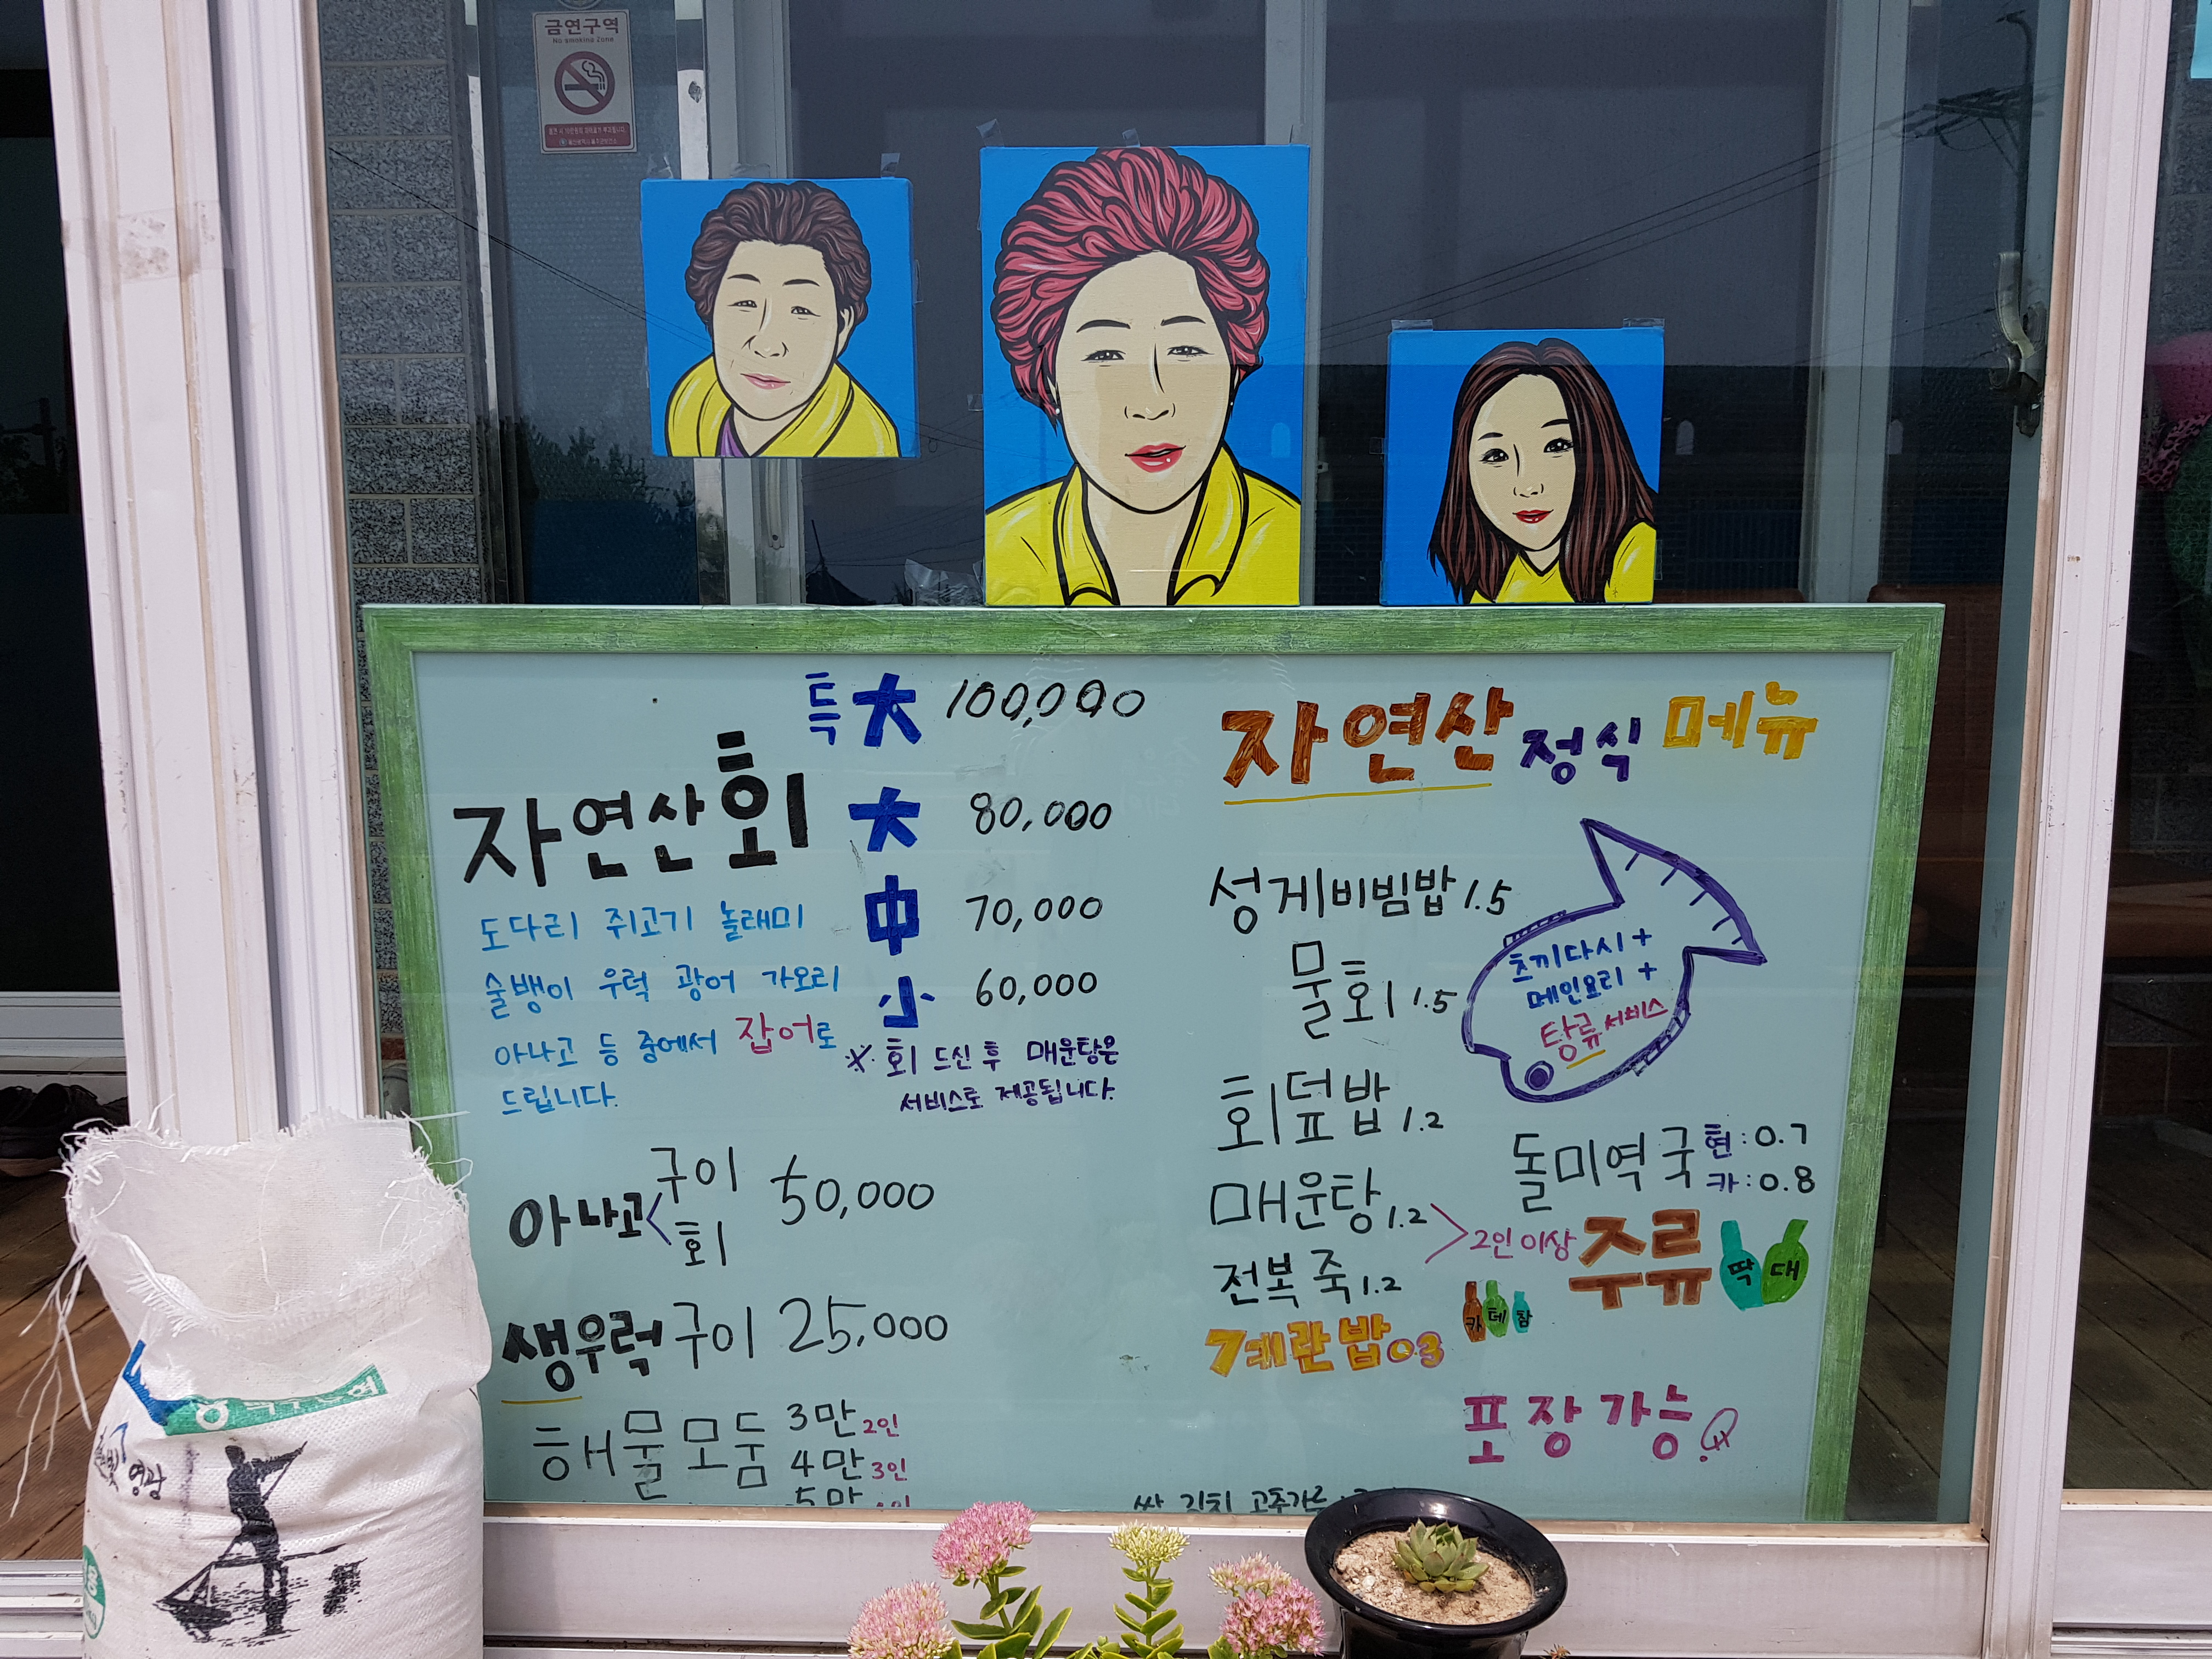 금연구역
No smoking Zone
특大 100,000
자연산회
大 80,000
中 70,000
小 60,000
도다리 쥐고기 놀래미
술뱅이 우럭 광어 가오리
아나고 등 중에서 잡어로
드립니다.
※ 회 드신 후 매운탕은
서비스로 제공됩니다.
아나고 < 구이 회 50,000
생우럭구이 25,000
해물모둠 3만 2인
4만 3인
5만
자연산 정식 메뉴
성게비빔밥 1.5
물회 1.5
츠끼다시 +
메인요리 +
탕류 서비스
회덮밥 1.2
매운탕 1.2
전복죽 1.2
> 2인 이상
계란밥 03
돌미역국 현: 0.7
카: 0.8
주류 딱 대
카 테 참
포장 가능
쌀 김치 고추가루
영광